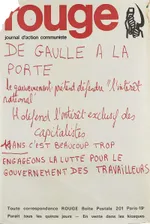 rouge
journal d'action communiste
DE GAULLE A LA
PORTE
Le gouvernement prétend défendre "l'intérêt
national"
Il défend l'intérêt exclusif des
Capitalistes
10 ANS C'EST BEAUCOUP TROP
ENGAGEONS LA LUTTE POUR LE
GOUVERNEMENT DES TRAVAILLEURS
Toute correspondance ROUGE Boîte Postale 201 Paris-19e
Paraît tous les quinze jours — En vente dans les kiosques